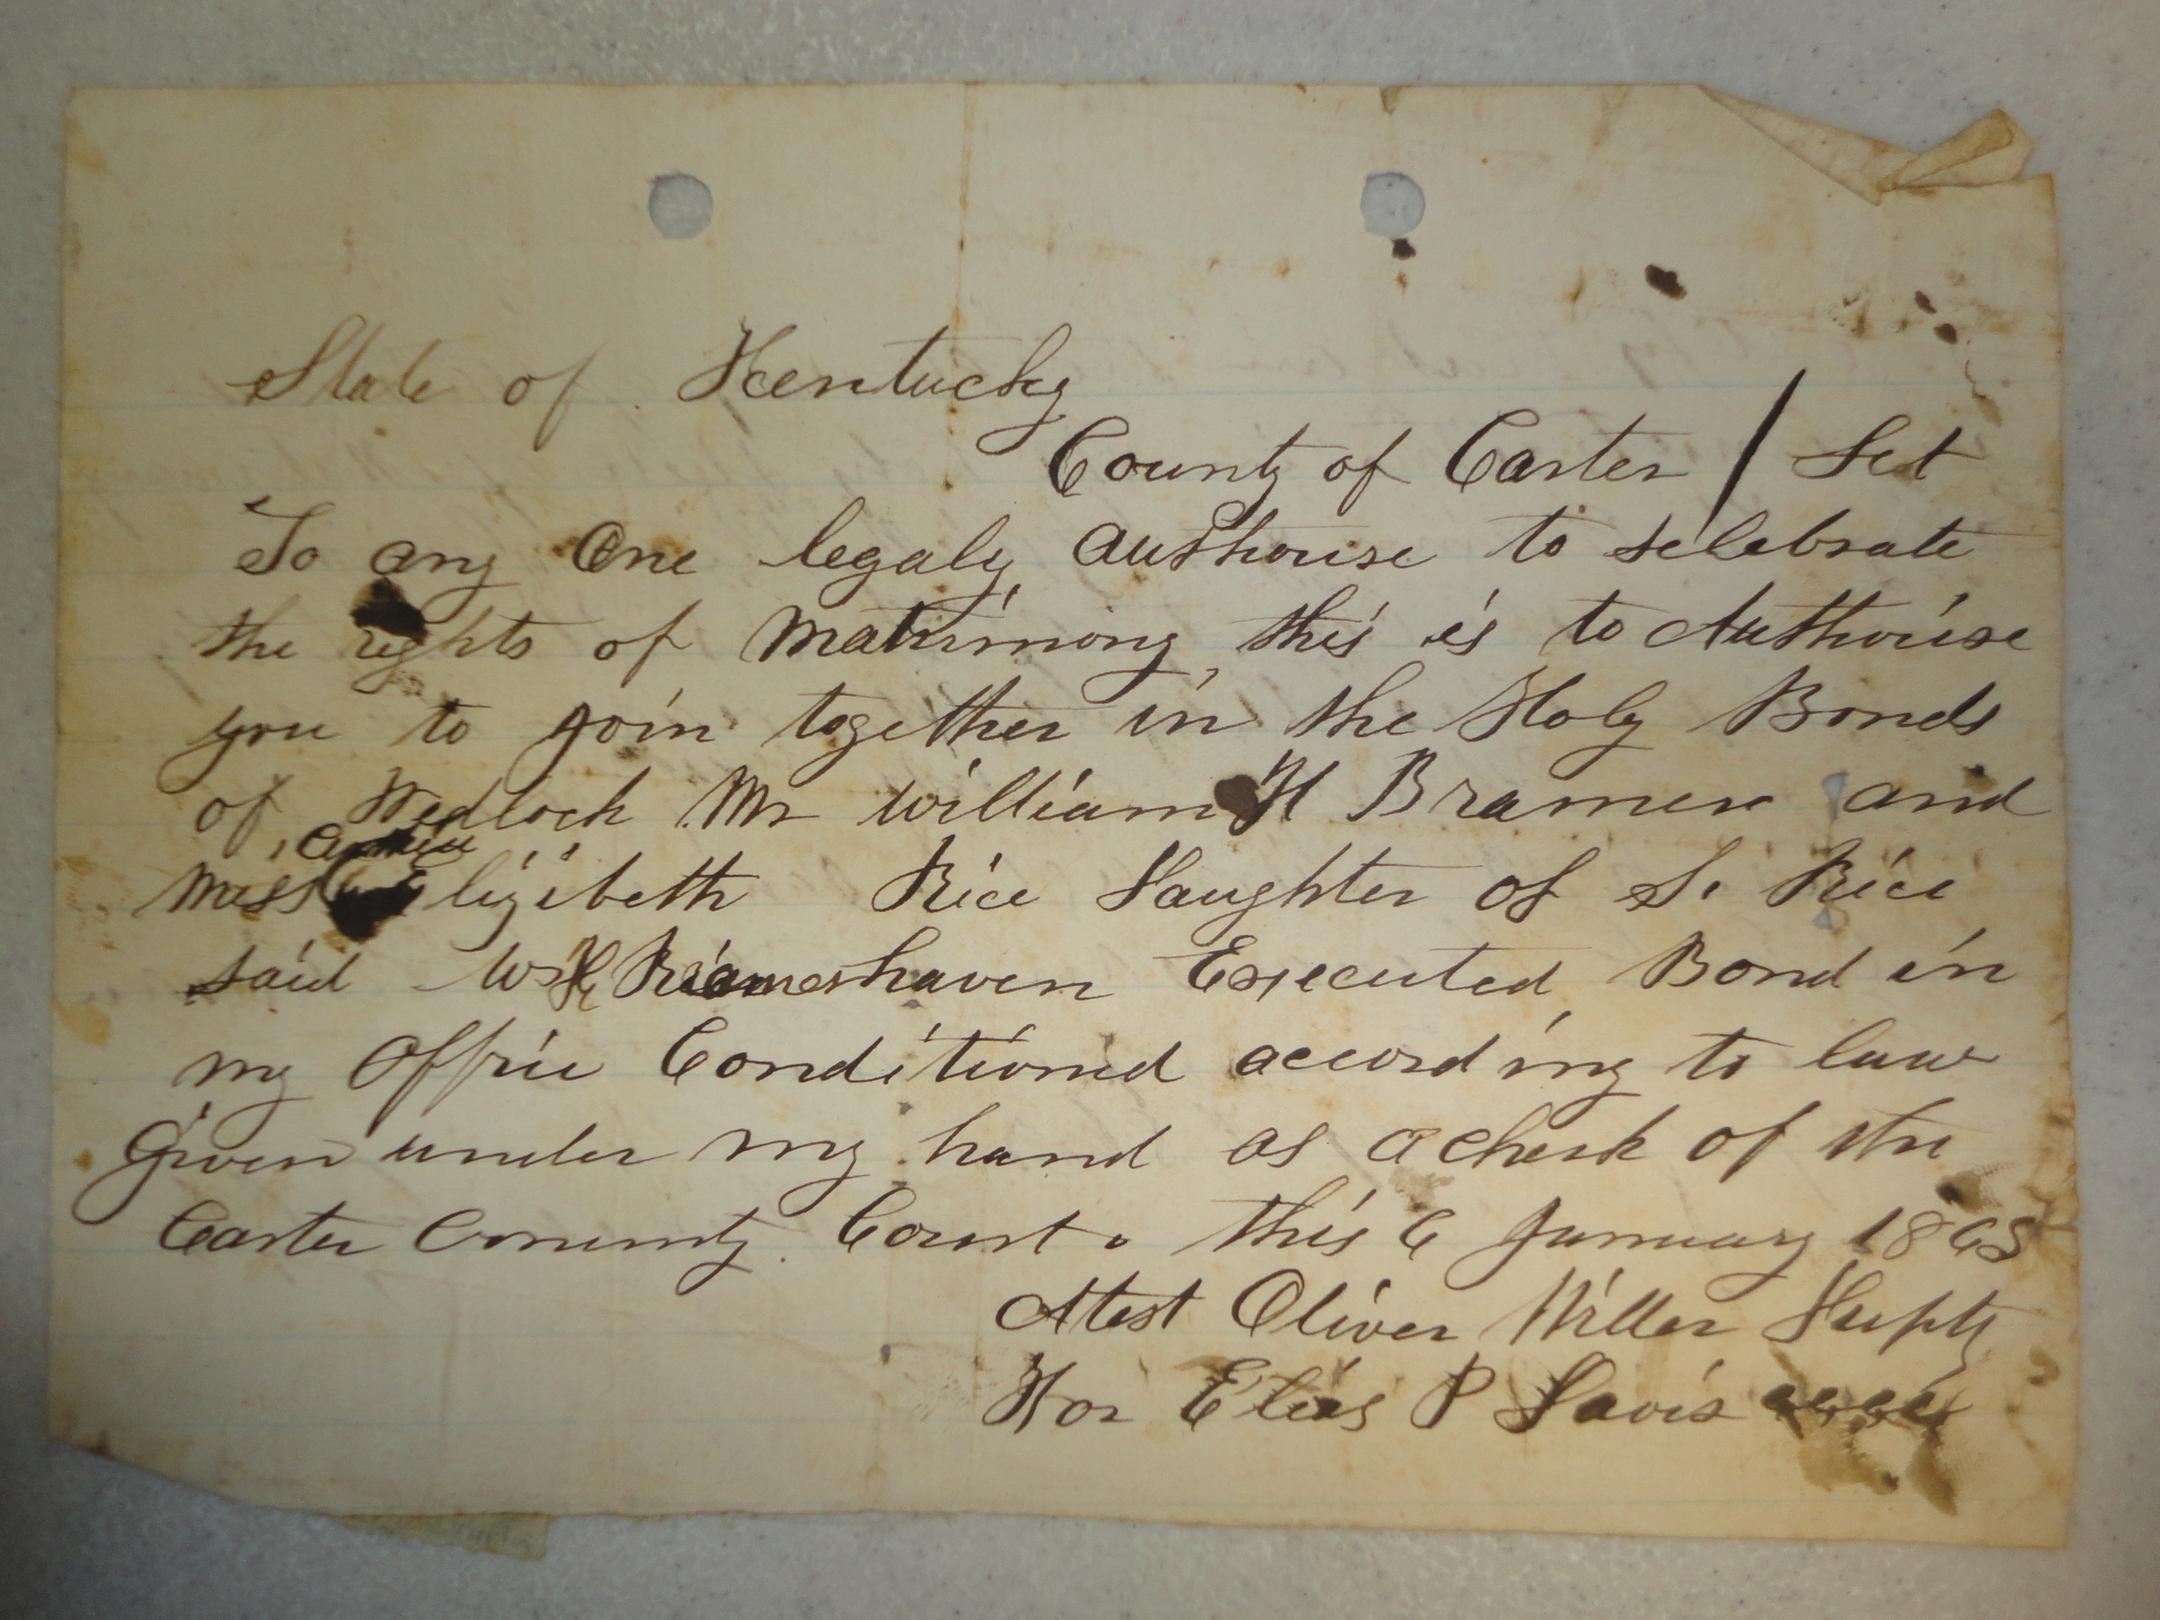 State of Kentucky
County of Carter / Sct
To any One legaly Authorise to selebrate
the rights of Matrimony, this is to Authorise
you to join together in the Holy Bonds
of Wedlock Mr William H Bramer and
Miss Elizibeth Rice Daughter of S. Rice
said W H Bramer haven Executed Bond in
my Office Conditioned according to law
Given under my hand as a Clerk of the
Carter County Court. this 6 January 1868
Atest Oliver Miller Depty
For Elias P Davis